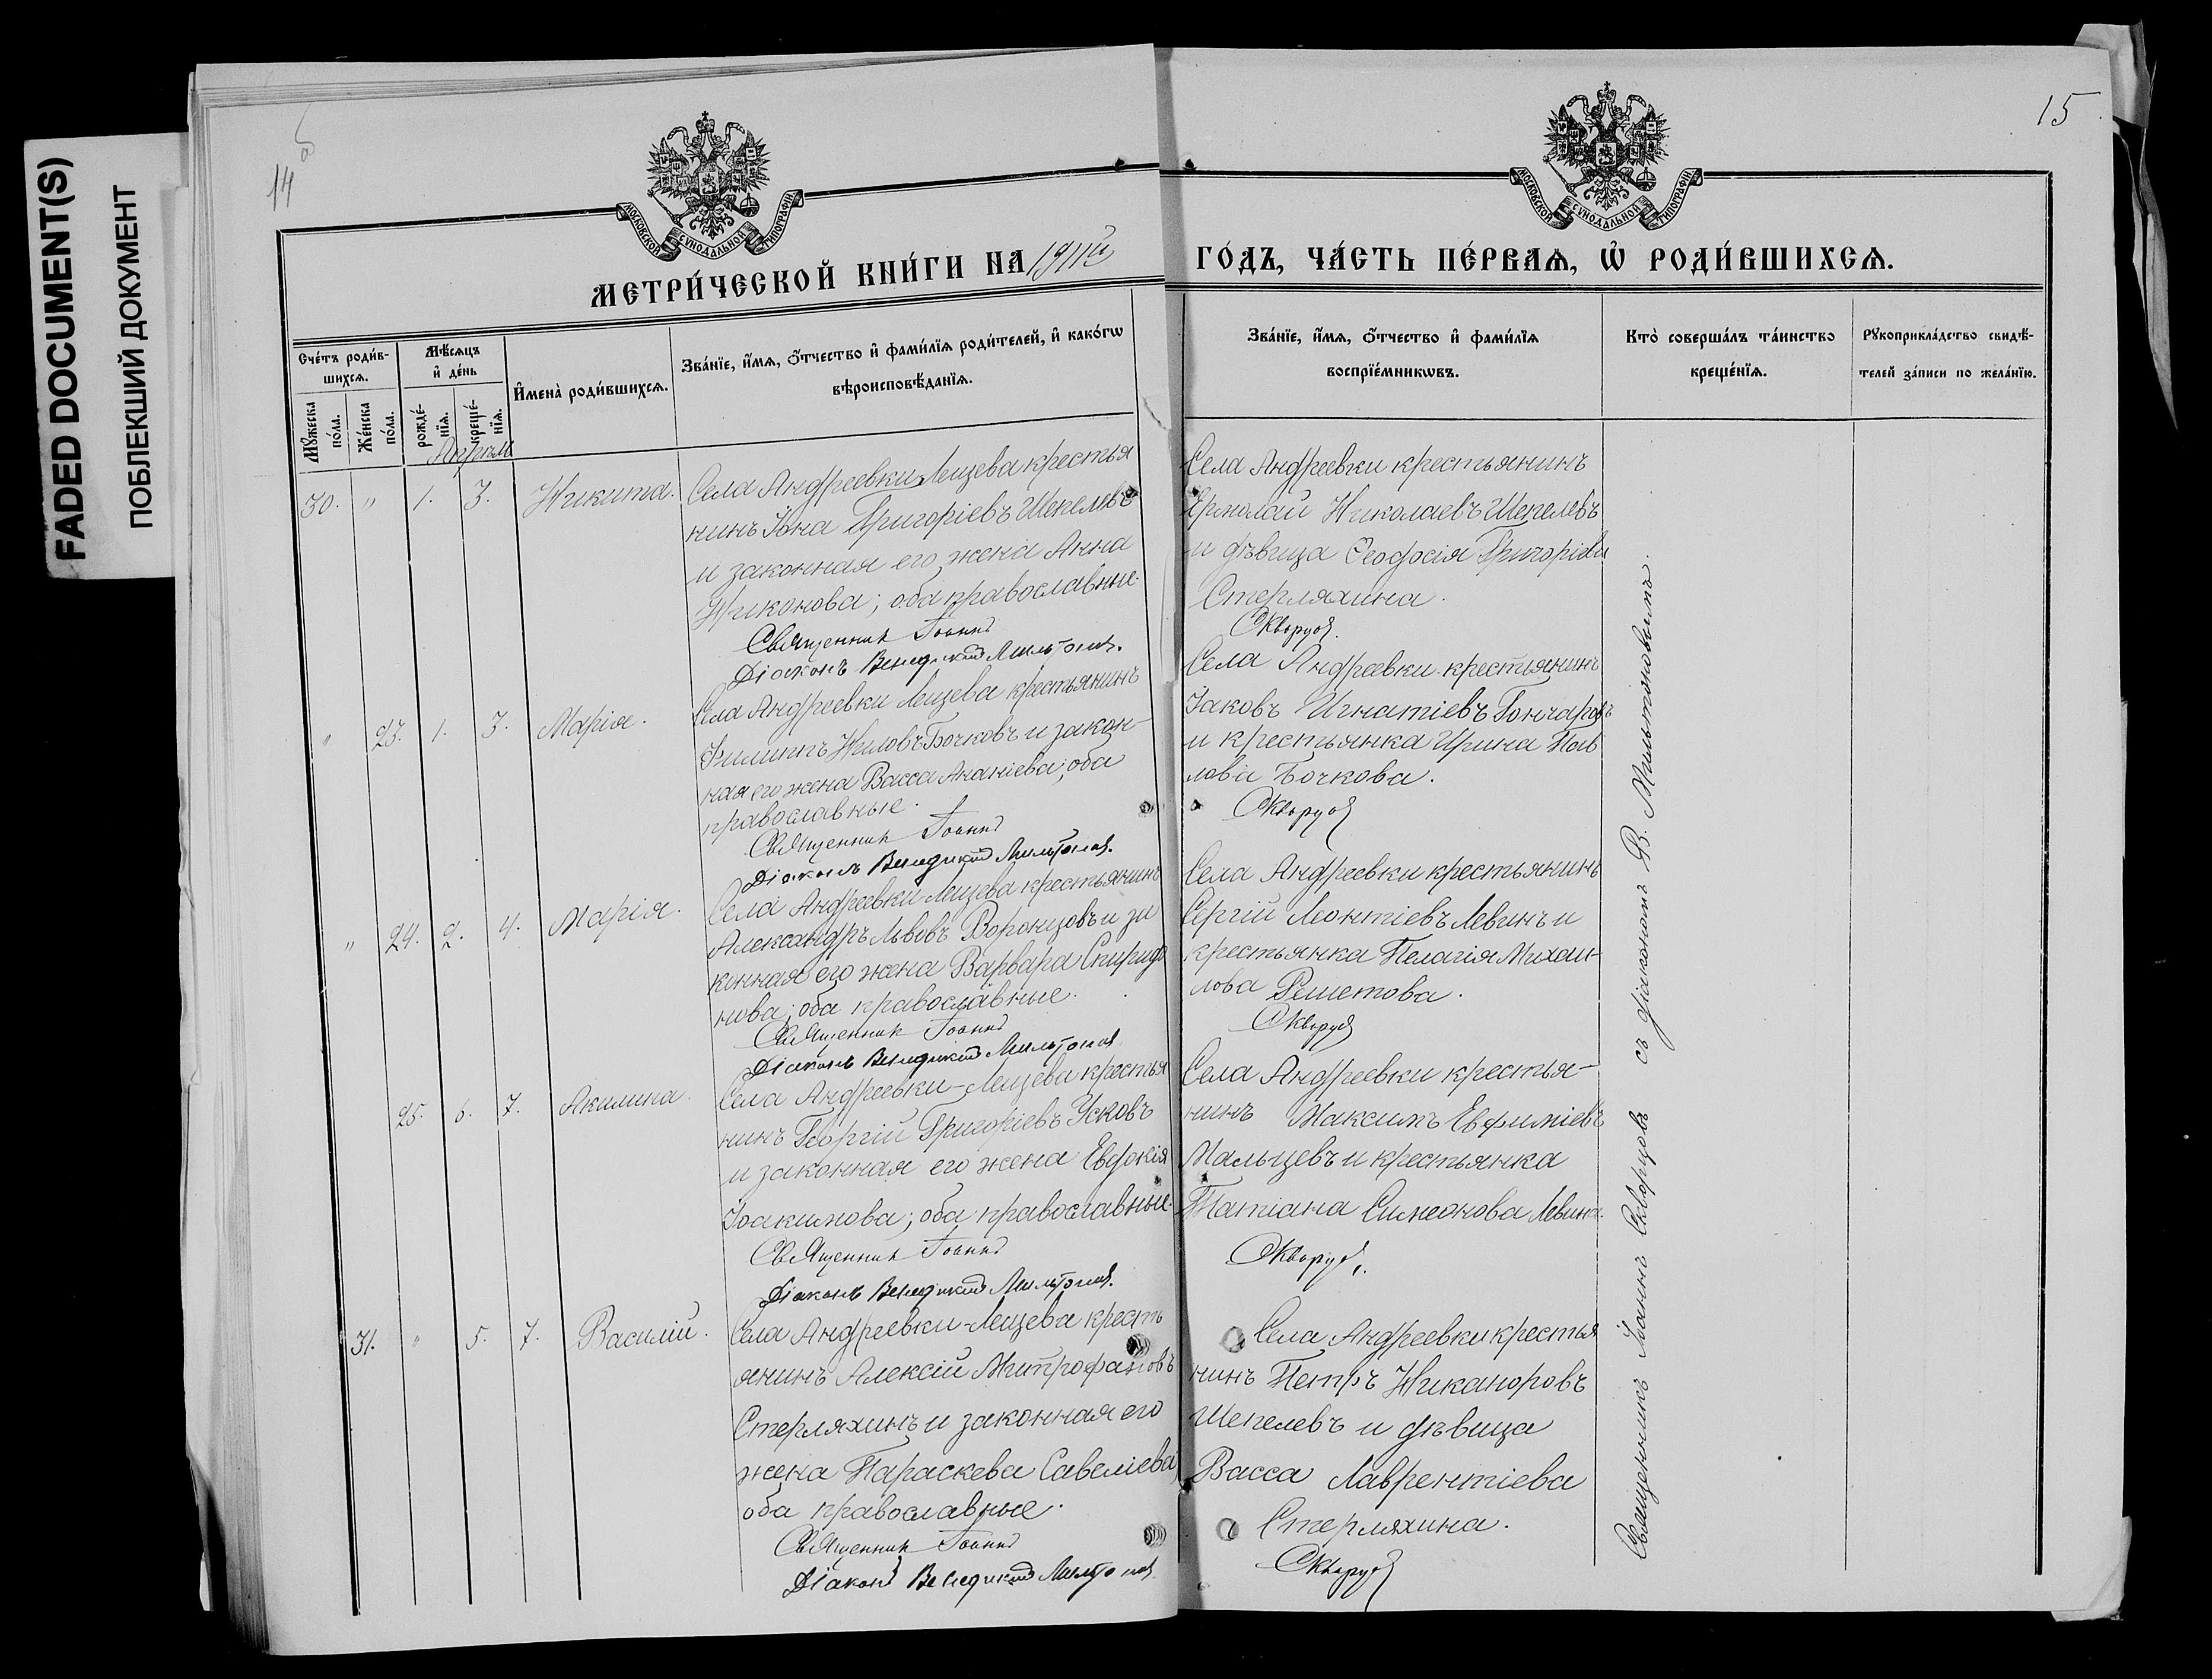 FADED DOCUMENT(S)
ПОБЛЕКШИЙ ДОКУМЕНТ
14
15
МОСКОВСКОЙ СѴНОДАЛЬНОЙ ТИПОГРАФІИ
МОСКОВСКОЙ СѴНОДАЛЬНОЙ ТИПОГРАФІИ
МЕТРИ́ЧЕСКОЙ КНИ́ГИ НА 1911й ГО́ДЪ, ЧА́СТЬ ПЕ́РВАѦ, Ѡ҆ РОДИ́ВШИХСѦ.
Сче́тъ роди́в-
шихсѧ.
Мꙋ́жеска по́ла.
Же́нска по́ла.
Мѣ́сѧцъ
и҆ де́нь
рожде́-
нїѧ.
креще́-
нїѧ.
И҆мена̀ роди́вшихсѧ.
Зва́нїе, и҆́мѧ, ѻ҆́тчество и҆ фами́лїѧ роди́телей, и҆ како́гѡ
вѣроисповѣ́данїѧ.
Зва́нїе, и҆́мѧ, ѻ҆́тчество и҆ фами́лїѧ
воспрїе́мникѡвъ.
Кто̀ соверша́лъ та́инство
креще́нїѧ.
Рꙋкоприкла́дство свидѣ́-
телей за́писи по жела́нїю.
Апрѣль
30. " 1. 3. Никита.
Села Андреевки Лещева крестья
нинъ Іона Григоріевъ Шепелевъ
и законная его жена Анна
Никонова; оба православные.
Священник Іоанн Скворцов.
Діаконъ Венедикт Мильтонов.
Села Андреевки крестьянинъ
Ермолай Николаевъ Шепелевъ
и дѣвица Ѳеодосія Григоріева
Стерляхина.
" 23. 1. 3. Марія.
Села Андреевки Лещева крестьянинъ
Филиппъ Ниловъ Бочковъ и закон-
ная его жена Васса Ананіева; оба
православные.
Священник Іоанн Скворцов
Діаконъ Венедикт Мильтонов.
Села Андреевки крестьянинъ
Іаковъ Игнатіевъ Гончаровъ
и крестьянка Ирина Пав
лова Бочкова.
" 24. 2. 4. Марія.
Села Андреевки Лещева крестьянинъ
Александръ Львовъ Воронцовъ и за
конная его жена Варвара Спиридо
нова; оба православные.
Священник Іоанн Скворцов
Діаконъ Венедикт Мильтонов
Села Андреевки крестьянинъ
Сергій Леонтіевъ Левинъ и
крестьянка Пелагія Михаи-
лова Решетова.
25. 6. 7. Акилина.
Села Андреевки-Лещева крестья
нинъ Георгій Григоріевъ Усковъ
и законная его жена Евдокія
Іоакимова; оба православные.
Священник Іоанн Скворцов.
Діаконъ Венедикт Мильтонов.
Села Андреевки крестья-
нинъ Максимъ Евфиміевъ
Мальцевъ и крестьянка
Татіана Симеонова Левина.
31. " 5. 7. Василій.
Села Андреевки-Лещева кресть
янинъ Алексій Митрофановъ
Стерляхинъ и законная его
жена Параскева Савеліева;
оба православные.
Священник Іоанн Скворцов
Діаконъ Венедикт Мильтонов
Села Андреевки крестья
нинъ Петръ Никаноровъ
Шепелевъ и дѣвица
Васса Лаврентіева
Стерляхина.
Священникъ Іоаннъ Скворцовъ съ діакономъ В. Мильтоновымъ.